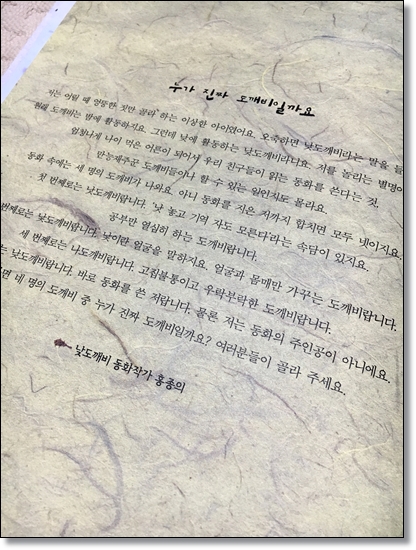 누가 진짜 도깨비일까요
저는 어릴 때 엉뚱한 짓만 골라 하는 이상한 아이였어요. 오죽하면 낮도깨비라는 말을 들
원래 도깨비는 밤에 활동하지요. 그런데 낮에 활동하는 낮도깨비라니요. 저를 놀리는 별명이
엄청나게 나이 먹은 어른이 되어서 우리 친구들이 읽는 동화를 쓴다는 것.
만능재주꾼 도깨비들이나 할 수 있는 일인지도 몰라요.
동화 속에는 세 명의 도깨비가 나와요. 아니 동화를 지은 저까지 합치면 모두 넷이지요.
첫 번째로는 낫도깨비랍니다. '낫 놓고 기역 자도 모른다'라는 속담이 있지요.
공부만 열심히 하는 도깨비랍니다.
번째로는 낯도깨비랍니다. 낯이란 얼굴을 말하지요. 얼굴과 몸매만 가꾸는 도깨비랍니다.
세 번째로는 나도깨비랍니다. 고집불통이고 우락부락한 도깨비랍니다.
는 낮도깨비랍니다. 바로 동화를 쓴 저랍니다. 물론 저는 동화의 주인공이 아니에요.
면 네 명의 도깨비 중 누가 진짜 도깨비일까요? 여러분들이 골라 주세요.
- 낮도깨비 동화작가 홍종의